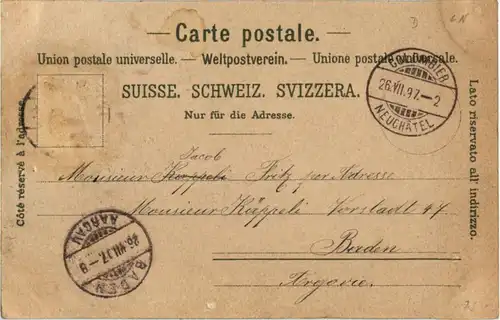 — Carte postale. —
Union postale universelle. — Weltpostverein. — Unione postale universale.
SUISSE. SCHWEIZ. SVIZZERA.
Nur für die Adresse.
Côté réservé à l'adresse.
Lato riservato all' indirizzo.
COLOMBIER
26.VII.97.–2
NEUCHÂTEL
Jacob
Monsieur Kappeli Fritz per Adresse
Monsieur Käppeli Vorstadt 47
Baden
Argovie.
AARGAU
26.VII.97–9
BADEN